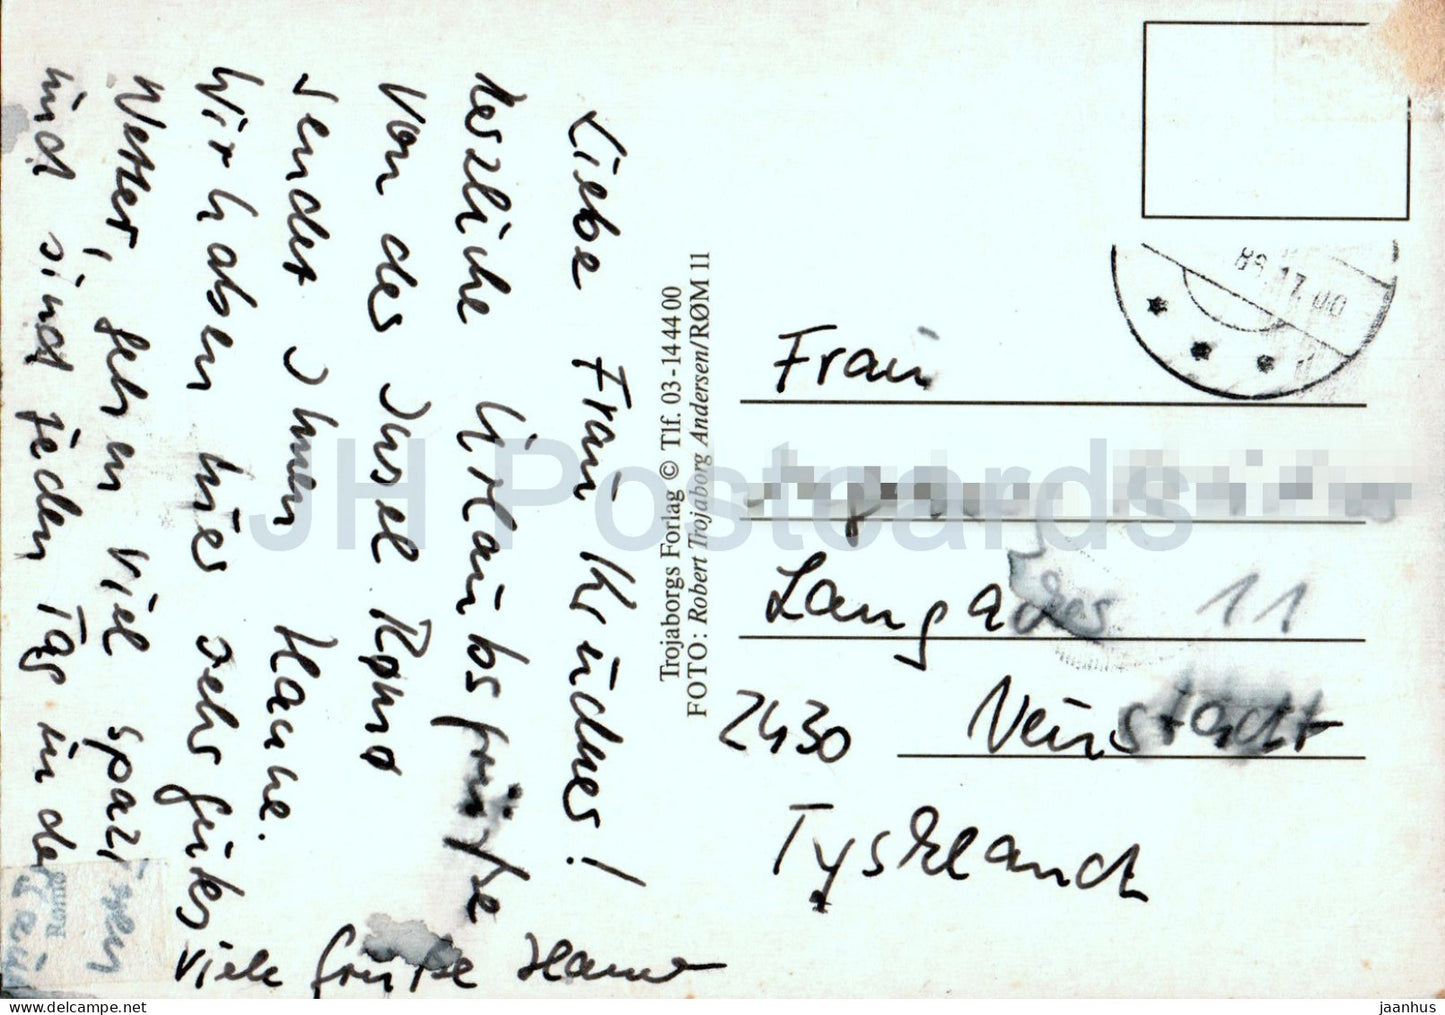 Liebe Frau Krüdner!
Herzliche Urlaubsgrüße
von der Insel Rømø
sendet Ihnen Hanne.
Wir haben hier sehr gutes
Wetter, gehen viel spazieren
und sind jeden Tag in der
Viele Grüße Hanne
Rømø
Trojaborgs Forlag © Tlf. 03-14 44 00
FOTO: Robert Trojaborg Andersen/RØM 11
Frau
11
2430 Neustadt
Tyskland
JH Postcards
www.delcampe.net
jaanhus